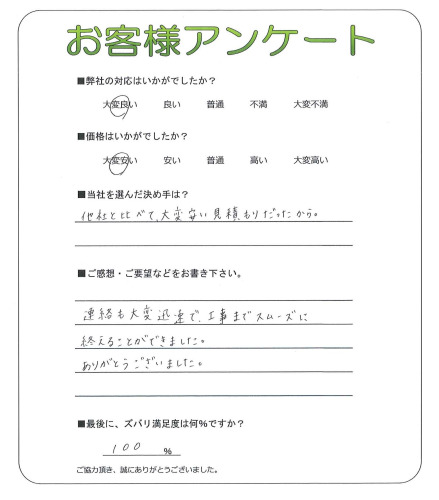 お客様アンケート
■弊社の対応はいかがでしたか?
大変良い 良い 普通 不満 大変不満
■価格はいかがでしたか?
大変安い 安い 普通 高い 大変高い
■当社を選んだ決め手は?
他社と比べて、大変安い見積もりだったから。
■ご感想・ご要望などをお書き下さい。
連絡も大変迅速で、工事までスムーズに
終えることができました。
ありがとうございました。
■最後に、ズバリ満足度は何%ですか?
100 %
ご協力頂き、誠にありがとうございました。